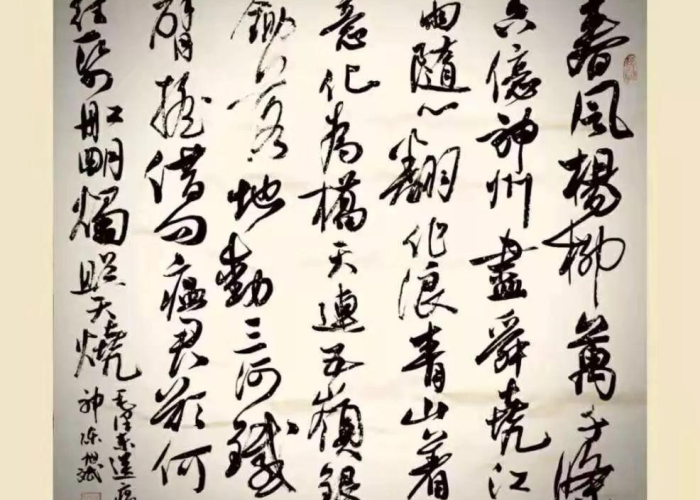 春风楊柳萬千條
六億神州盡舜堯红
雨隨心翻作浪青山著
意化為橋天連五嶺銀
鋤落地動三河鐵
臂摇借问瘟君欲何
往紙船明燭照天燒
毛泽东送瘟
神陈